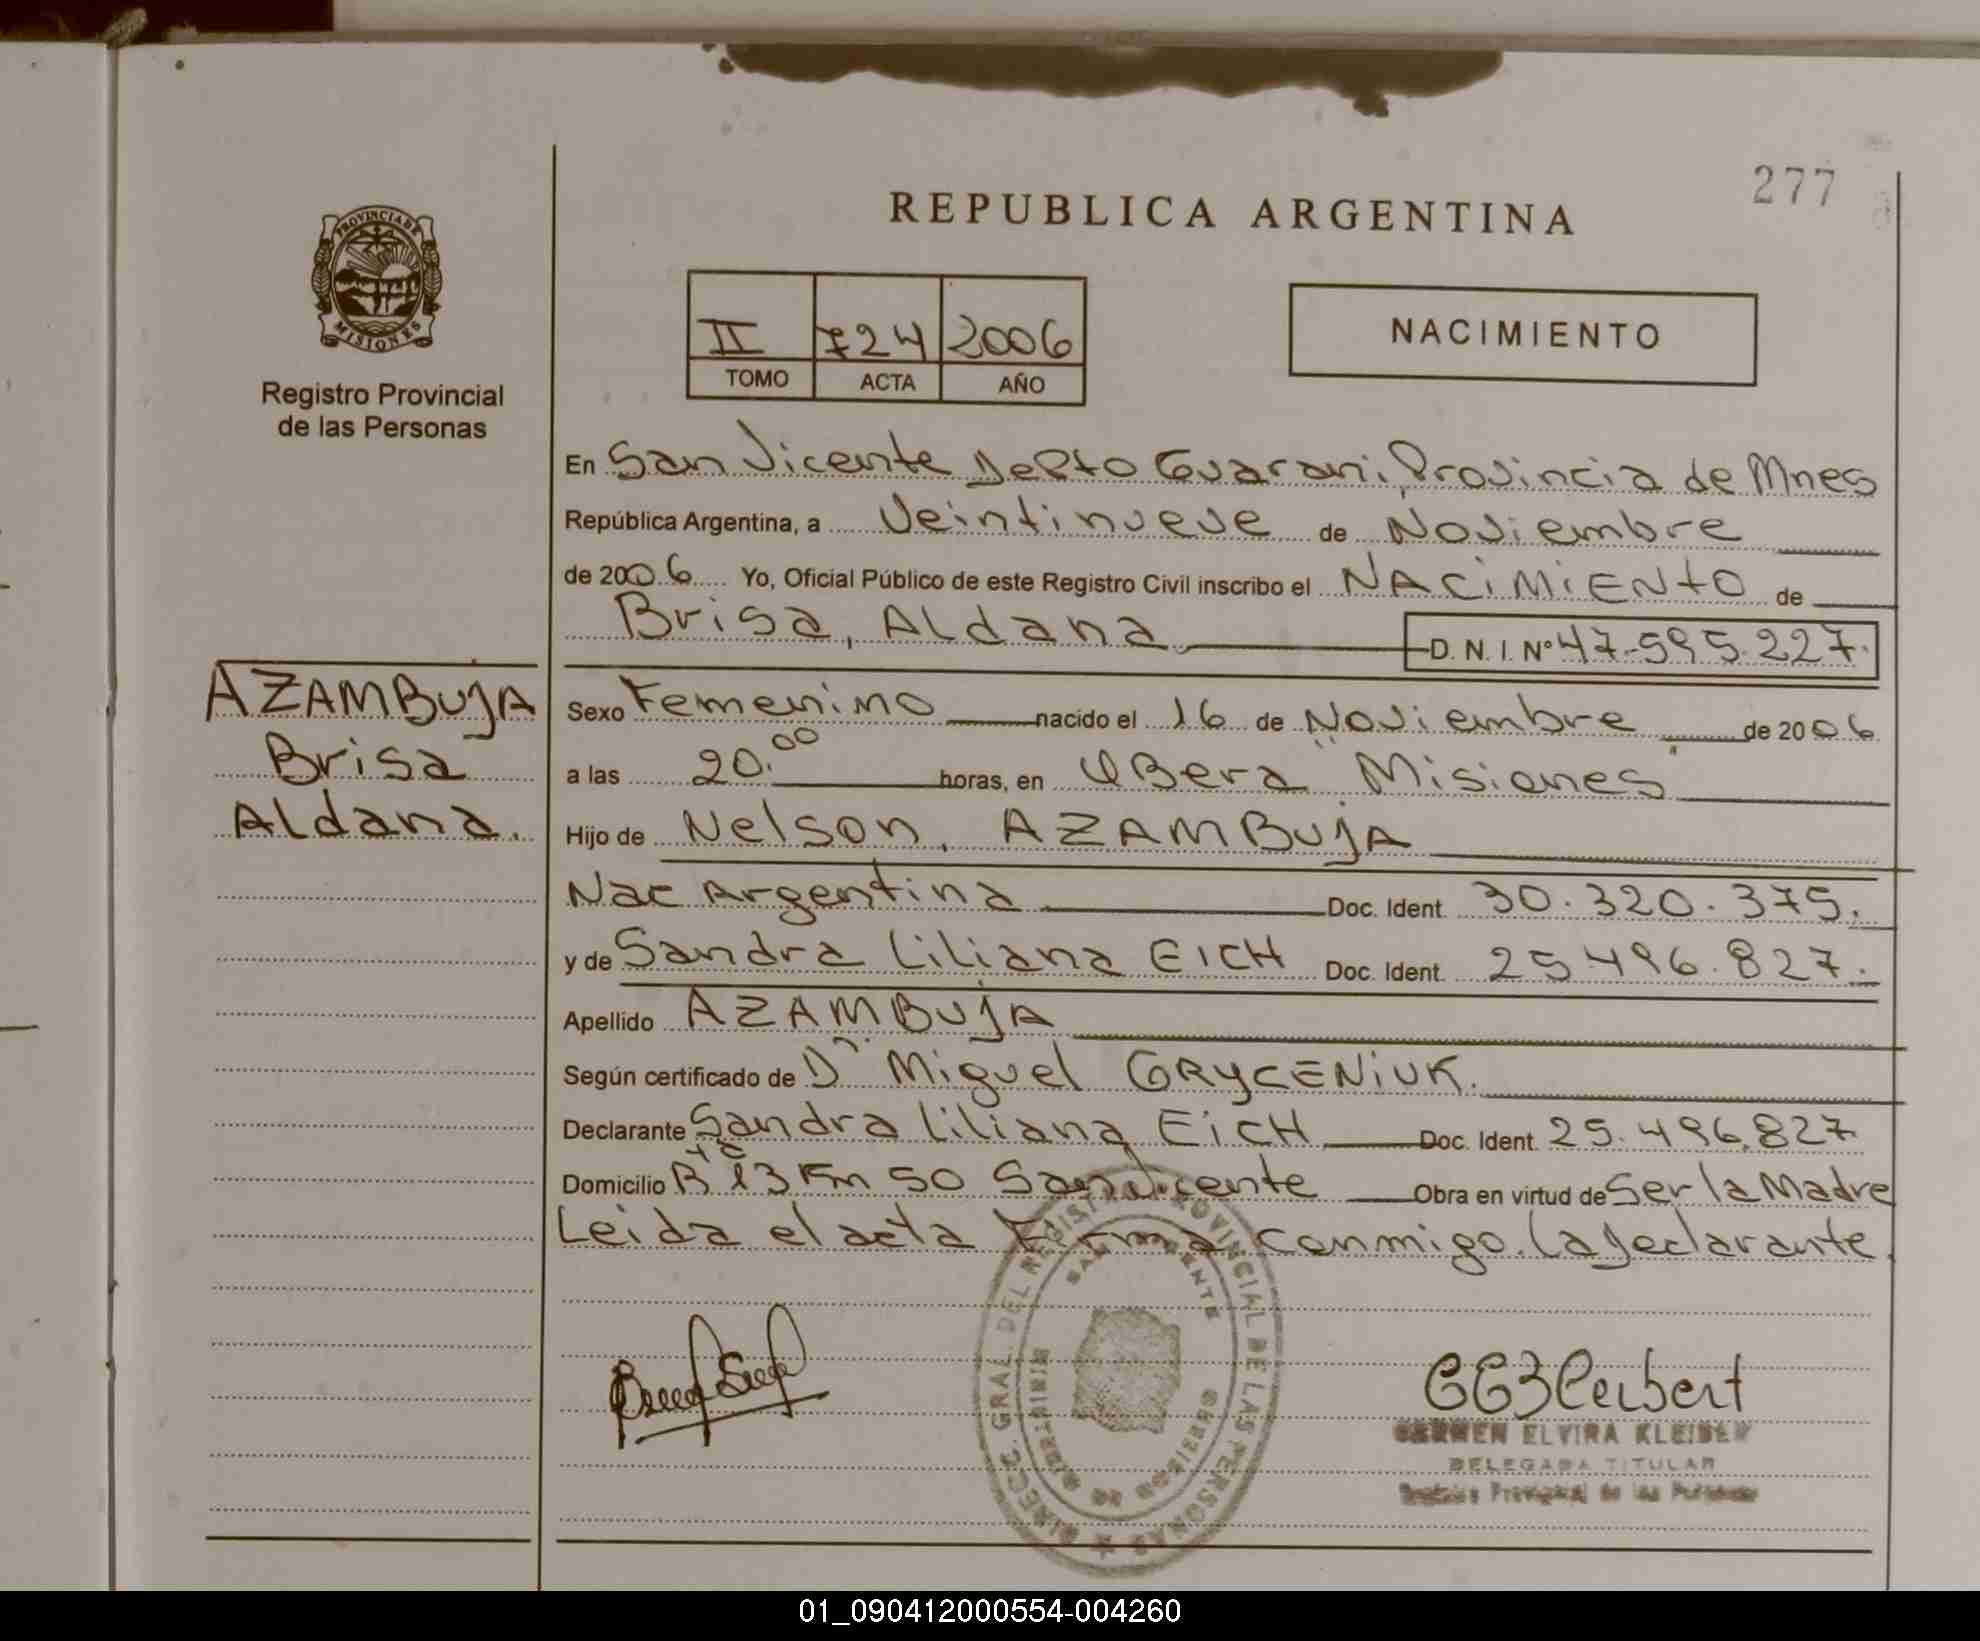 277
REPUBLICA ARGENTINA
PROVINCIA DE
MISIONES
Registro Provincial
de las Personas
II 724 2006
TOMO ACTA AÑO
NACIMIENTO
En San Vicente Depto Guarani, Provincia de Mnes
República Argentina, a Veintinueve de Noviembre
de 2006 Yo, Oficial Público de este Registro Civil inscribo el NACiMiENtO de
Brisa, Aldana D. N. I. Nº 47.595.227.
AZAMBUJA
Brisa
Aldana.
Sexo Femenino nacido el 16 de Noviembre de 2006
a las 20.00 horas, en OBera "Misiones"
Hijo de Nelson, AZAMBUJA
Nac Argentina Doc. Ident. 30.320.375.
y de Sandra Liliana EICH Doc. Ident. 25.496.827.
Apellido AZAMBUJA
Según certificado de Dr. Miguel GRYCENiUK.
Declarante Sandra Liliana EiCH Doc. Ident. 25.496.827
Domicilio Rta 13 Km 50 San Vicente Obra en virtud de Ser la Madre
Leida el acta Firma conmigo. la declarante.
DIREC. GRAL. DEL REGISTRO PROVINCIAL DE LAS PERSONAS
SAN VICENTE
MISIONES
CARMEN ELVIRA KLEIBERT
DELEGADA TITULAR
Registro Provincial de las Personas
01_090412000554-004260